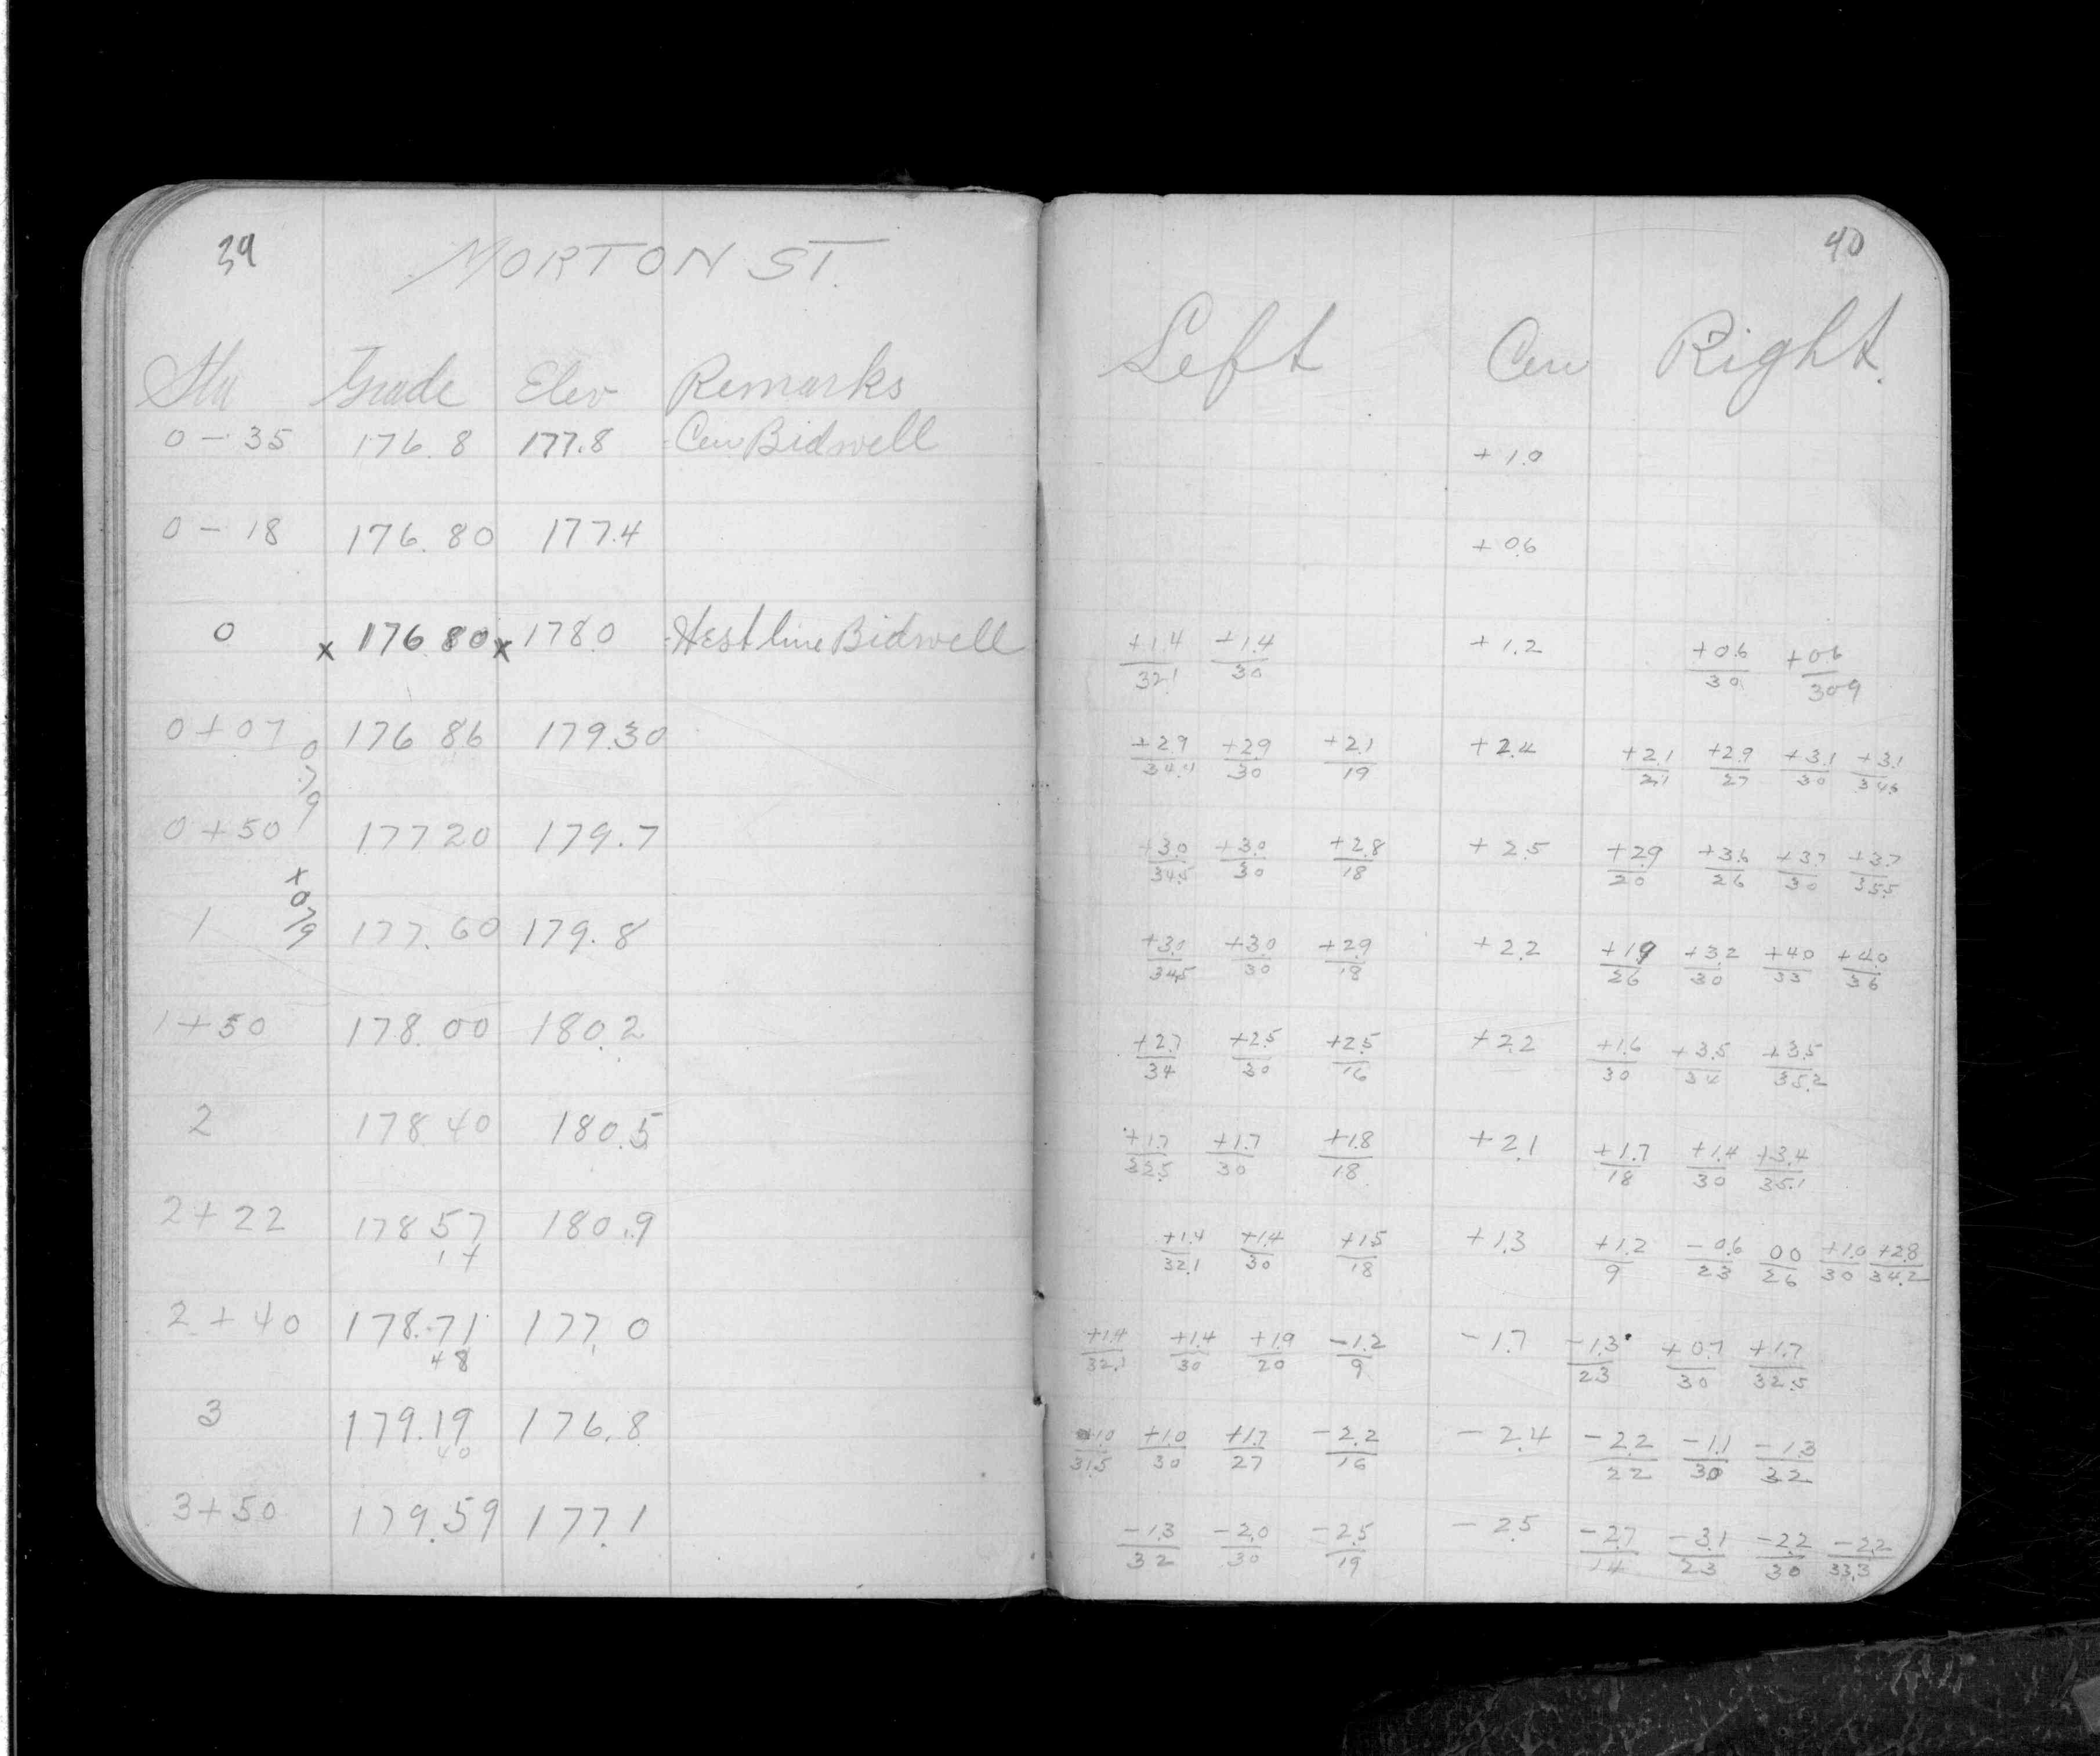 39
MORTON ST.
Sta Grade Elev Remarks
0 - 35 176.8 177.8 Cen Bidwell
0 - 18 176.80 177.4
0 x 176 80 x 178.0 West line Bidwell
0 + 07 176 86 179.30
0 + 50 177 20 179.7
1 177.60 179.8
1 + 50 178.00 180.2
2 178 40 180.5
2 + 22 178 57 180.9
17
2 + 40 178.71 177.0
48
3 179.19 176.8
40
3 + 50 179.59 177.1
0.79
x 079
40
Left Cen Right.
+ 1.0
+ 0.6
+1.4/32.1 +1.4/30 + 1.2 +0.6/30 +0.6/30.9
+2.9/34.4 +2.9/30 +2.1/19 + 2.4 +2.1/21 +2.9/27 +3.1/30 +3.1/34.6
+3.0/34.5 +3.0/30 +2.8/18 + 2.5 +2.9/20 +3.6/26 +3.7/30 +3.7/35.5
+3.0/34.5 +3.0/30 +2.9/18 + 2.2 +1.9/26 +3.2/30 +4.0/33 +4.0/36
+2.7/34 +2.5/30 +2.5/16 + 2.2 +1.6/30 +3.5/34 +3.5/35.2
+1.7/32.5 +1.7/30 +1.8/18 + 2.1 +1.7/18 +1.4/30 +3.4/35.1
+1.4/32.1 +1.4/30 +1.5/18 + 1.3 +1.2/9 -0.6/23 00/26 +1.0/30 +2.8/34.2
+1.4/32.1 +1.4/30 +1.9/20 -1.2/9 - 1.7 -1.3/23 +0.7/30 +1.7/32.5
+1.0/31.5 +1.0/30 +1.7/27 -2.2/16 - 2.4 -2.2/22 -1.1/30 -1.3/32
-1.3/32 -2.0/30 -2.5/19 - 2.5 -2.7/14 -3.1/23 -2.2/30 -2.2/33.3